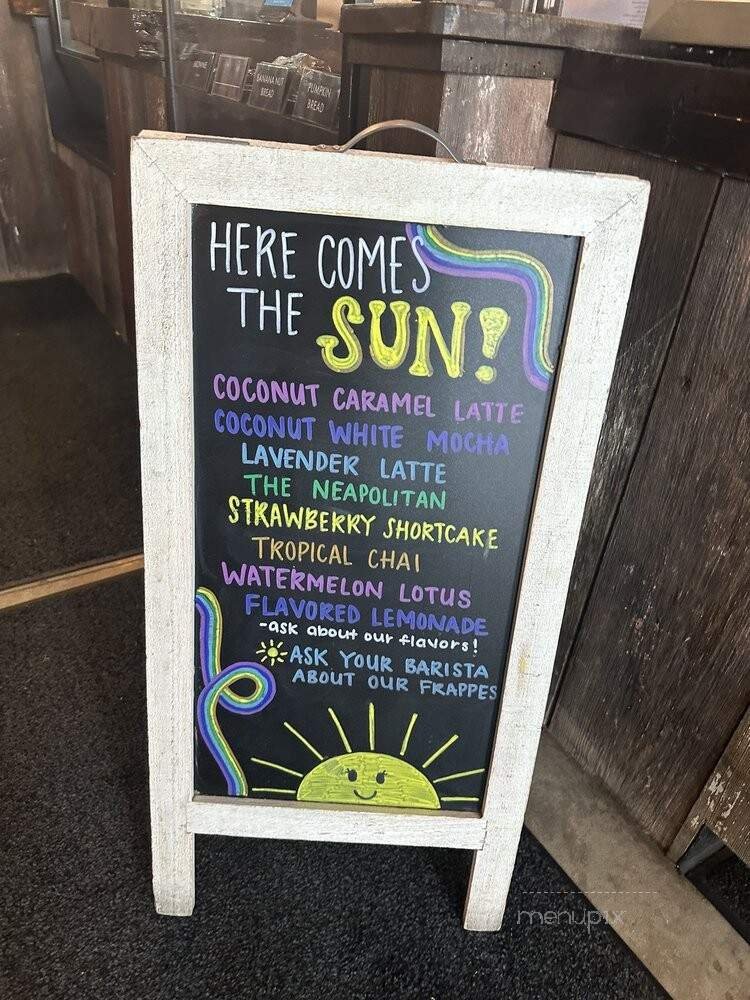 BANANA NUT
BREAD
PUMPKIN
BREAD
HERE COMES
THE SUN!
COCONUT CARAMEL LATTE
COCONUT WHITE MOCHA
LAVENDER LATTE
THE NEAPOLITAN
STRAWBERRY SHORTCAKE
TROPICAL CHAI
WATERMELON LOTUS
FLAVORED LEMONADE
-ask about our flavors!
ASK YOUR BARISTA
ABOUT OUR FRAPPES
menupix